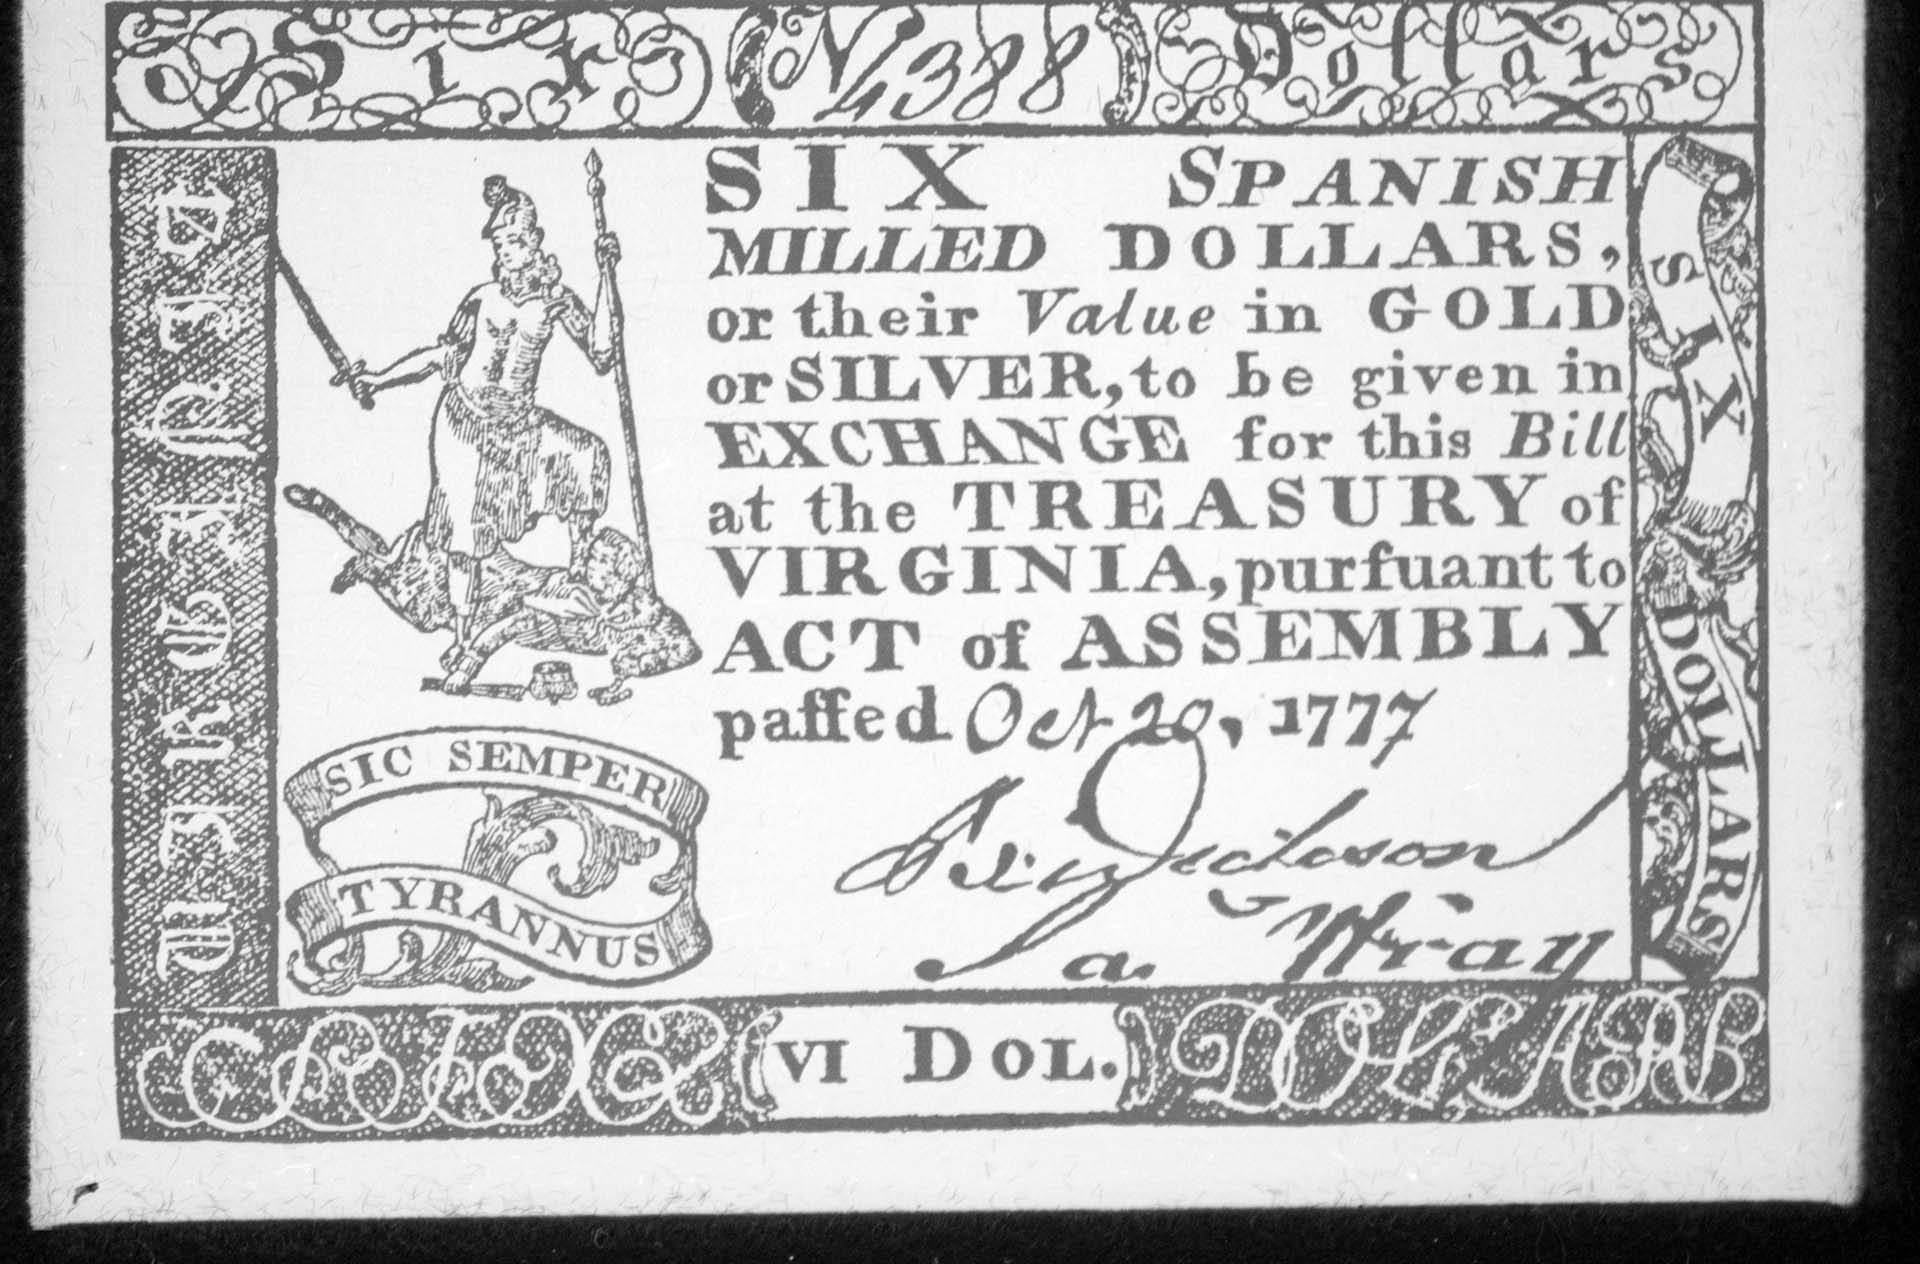 Six N 4388 Dollars
VIRGINIA
SIX SPANISH
MILLED DOLLARS,
or their Value in GOLD
or SILVER, to be given in
EXCHANGE for this Bill
at the TREASURY of
VIRGINIA, purſuant to
ACT of ASSEMBLY
paſſed Oct 20, 1777
Dickson
Ja. Wray
SIC SEMPER
TYRANNUS
SIX DOLLARS
SIX VI DOL. DOLLARS